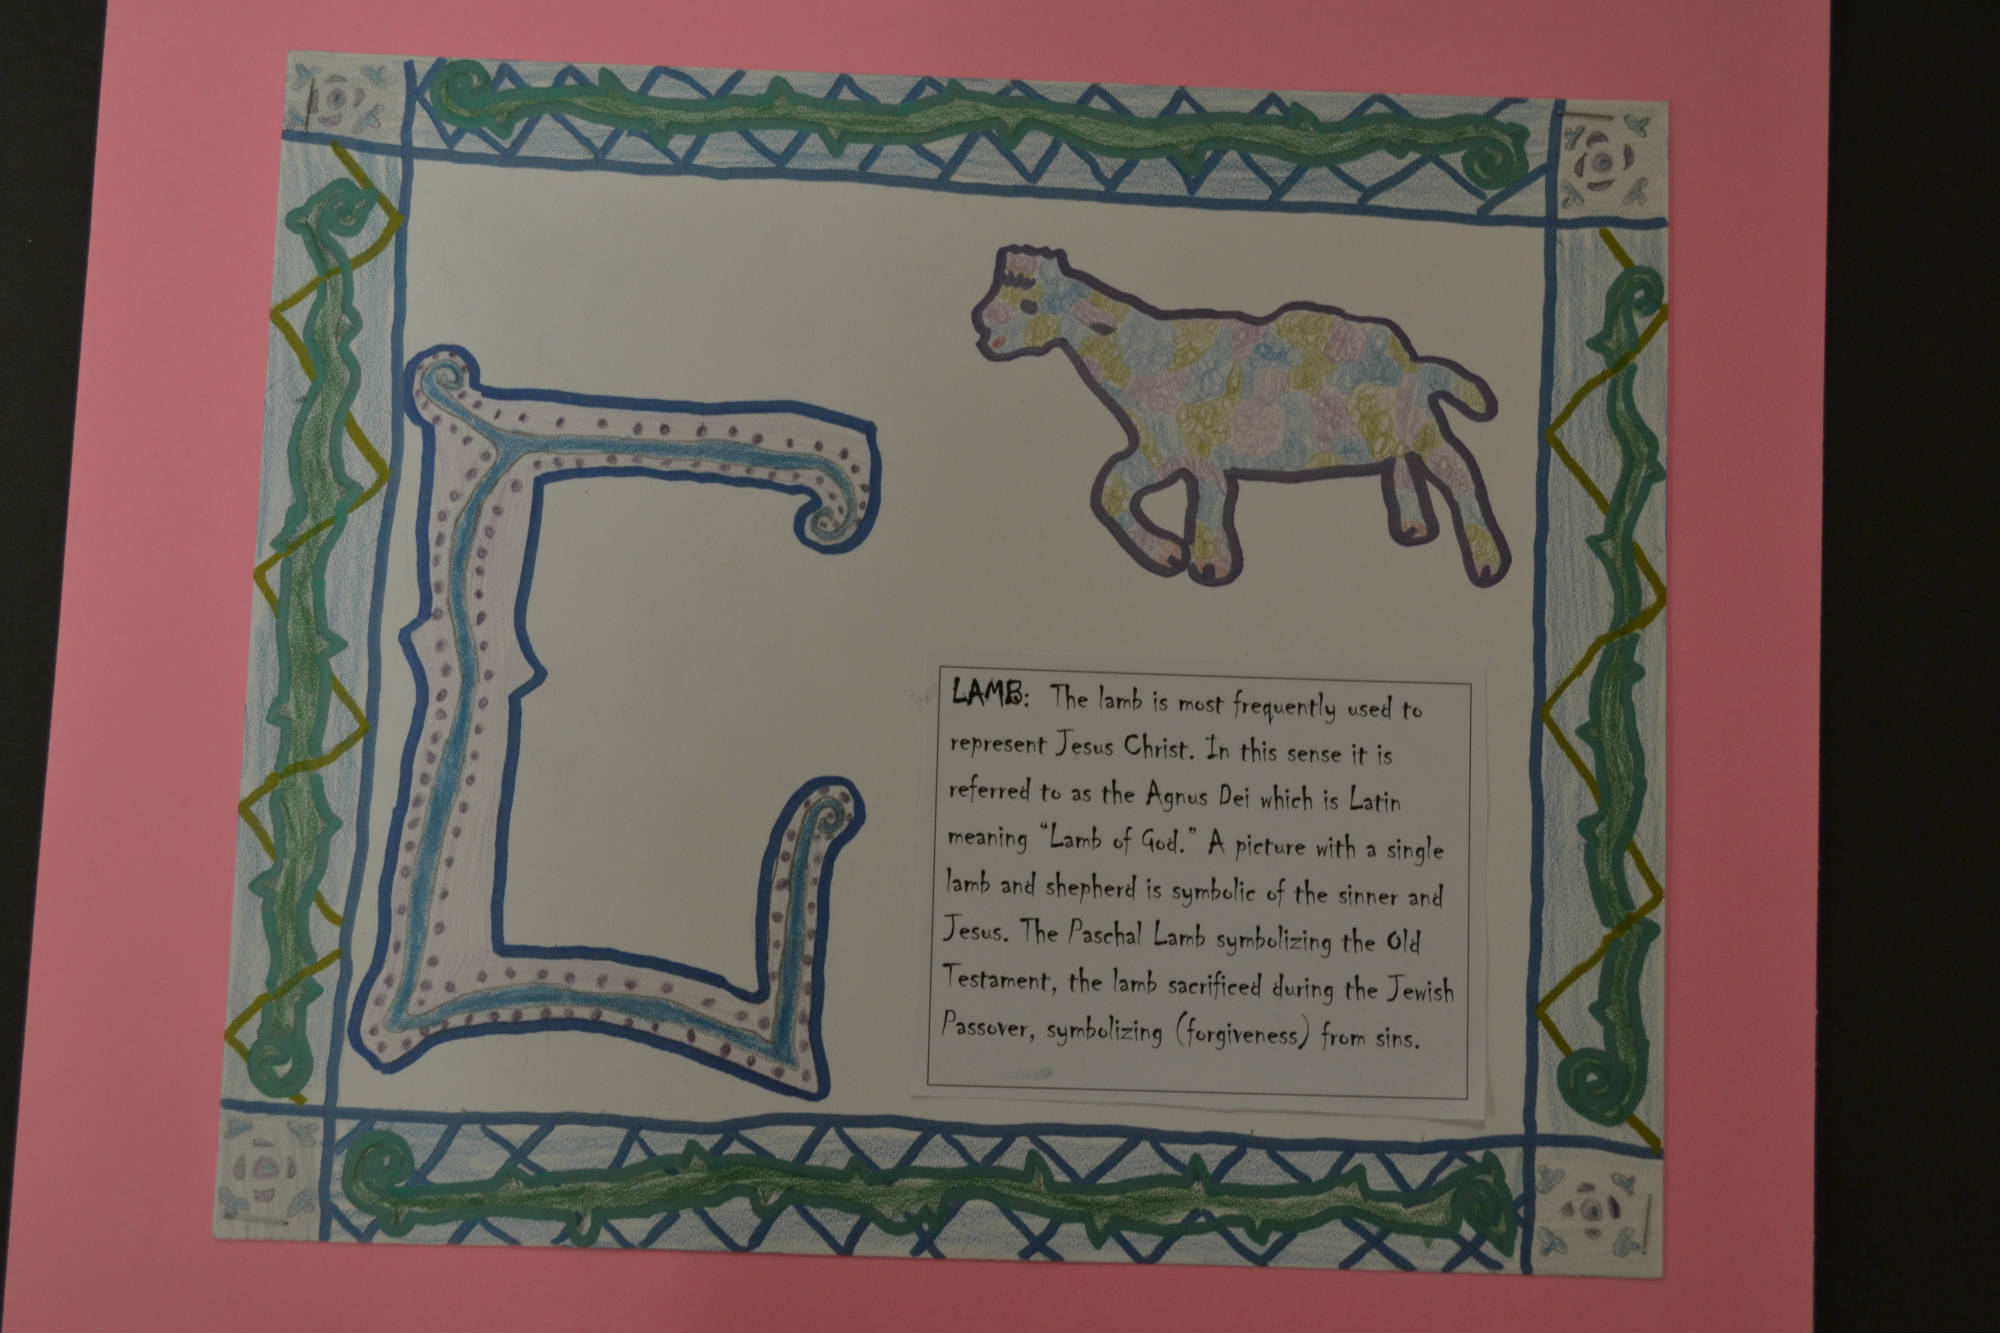 L
LAMB: The lamb is most frequently used to
represent Jesus Christ. In this sense it is
referred to as the Agnus Dei which is Latin
meaning “Lamb of God.” A picture with a single
lamb and shepherd is symbolic of the sinner and
Jesus. The Paschal Lamb symbolizing the Old
Testament, the lamb sacrificed during the Jewish
Passover, symbolizing (forgiveness) from sins.